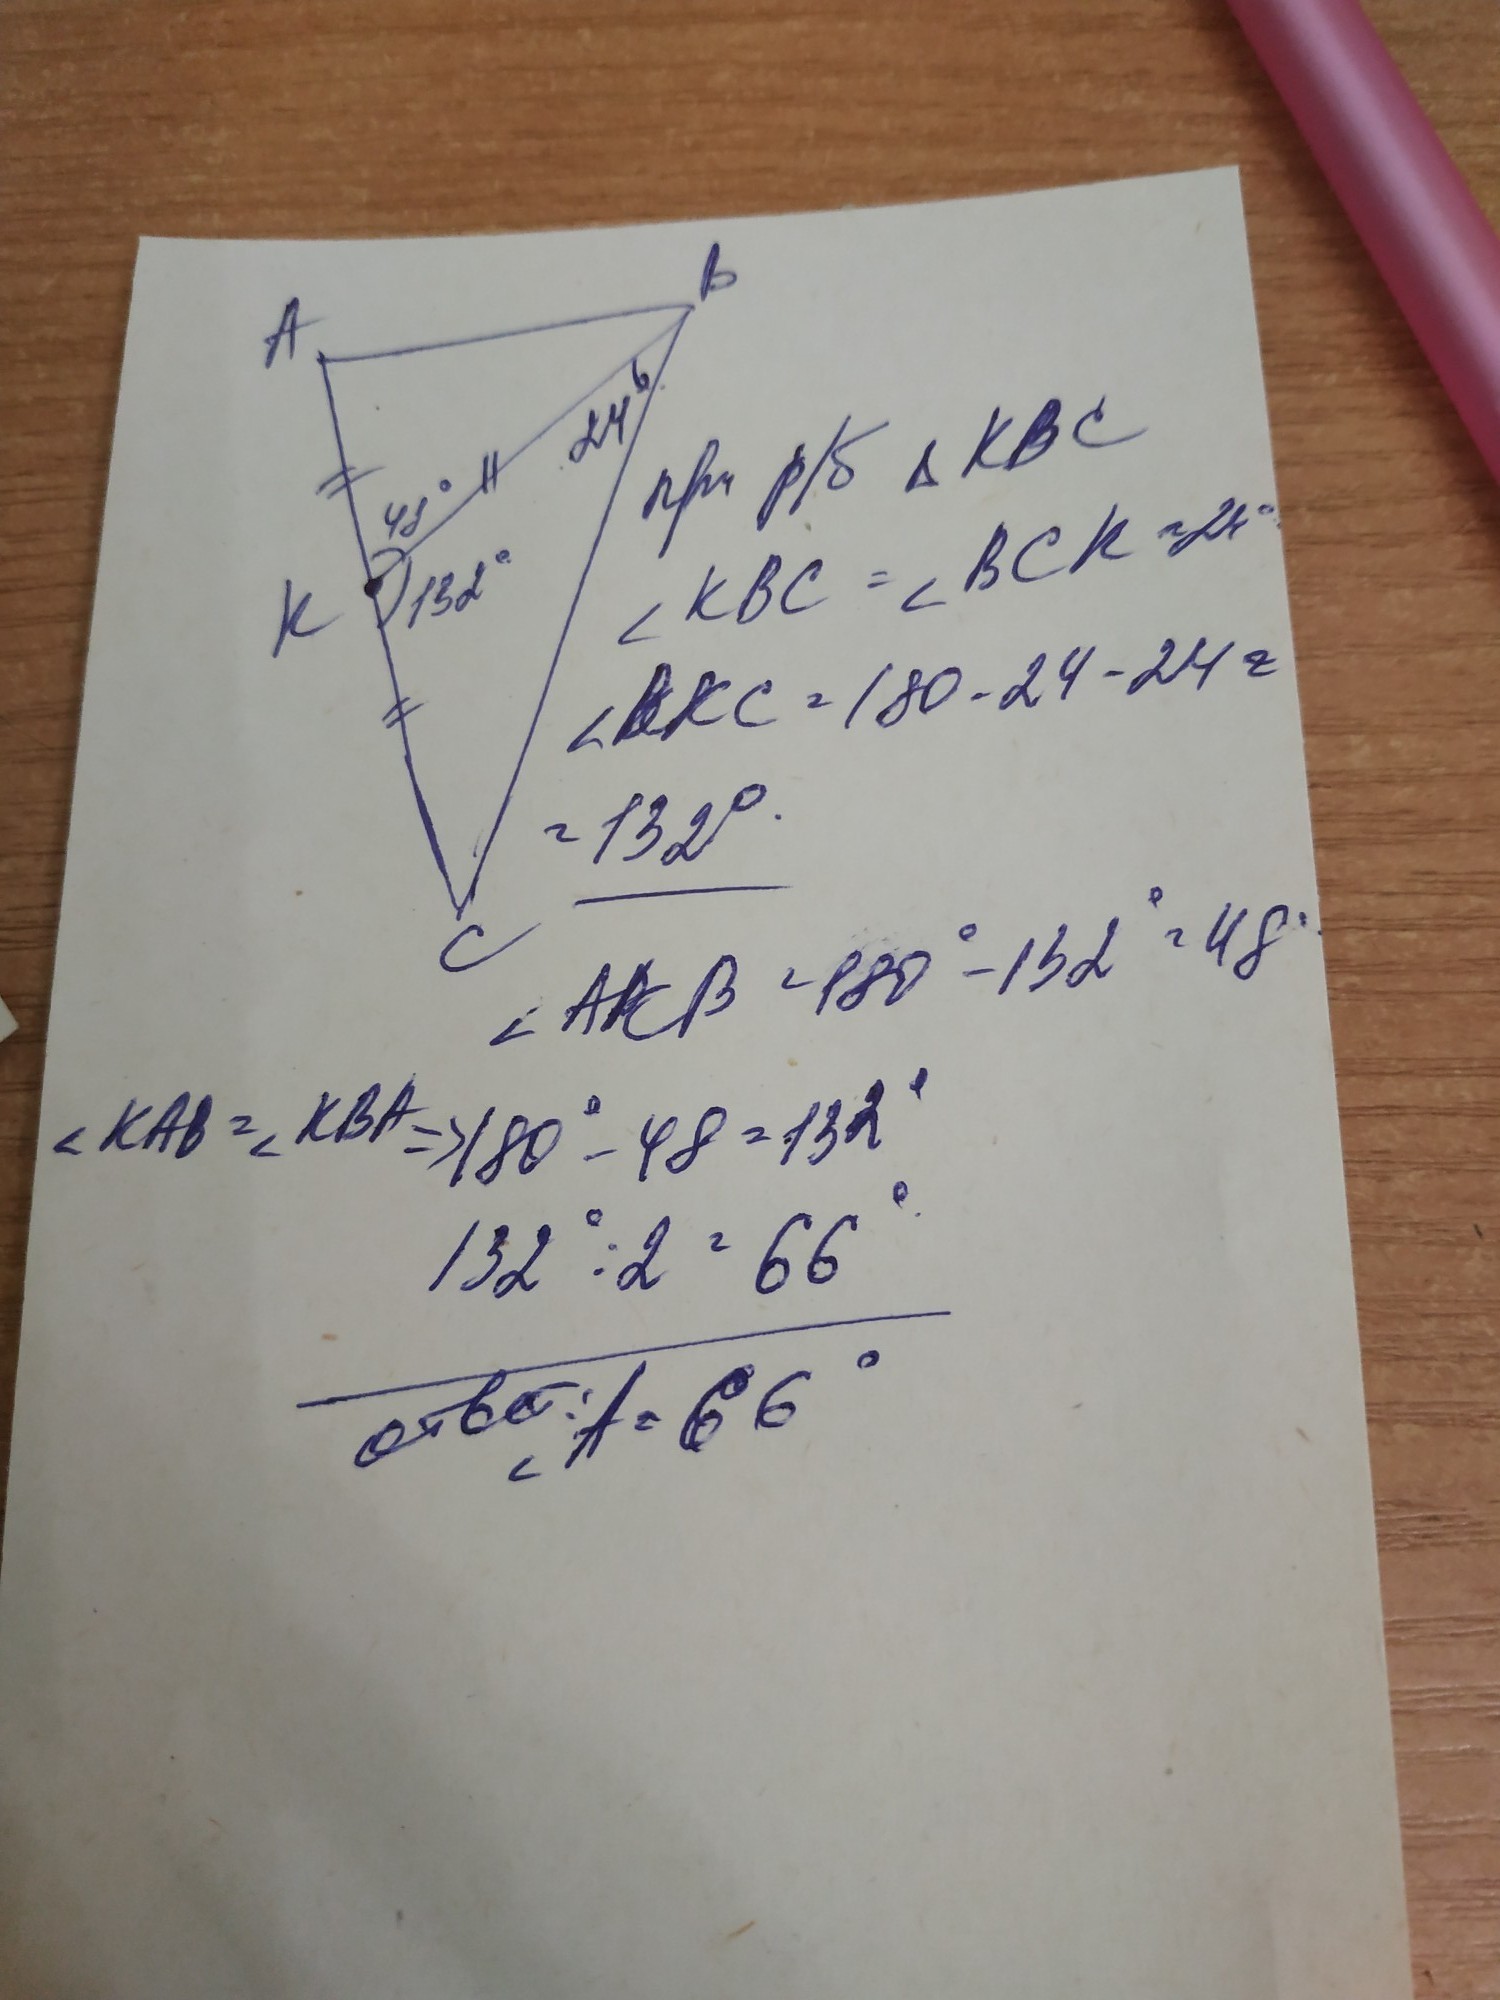 A
B
24°
48°
K
132°
C
при р/б Δ KBC
∠KBC = ∠BCK = 24°
∠BKC = 180 - 24 - 24 =
= 132°.
∠AKB = 180° - 132° = 48°.
∠KAB = ∠KBA => 180° - 48 = 132°
132° : 2 = 66°.
ответ: ∠A = 66°